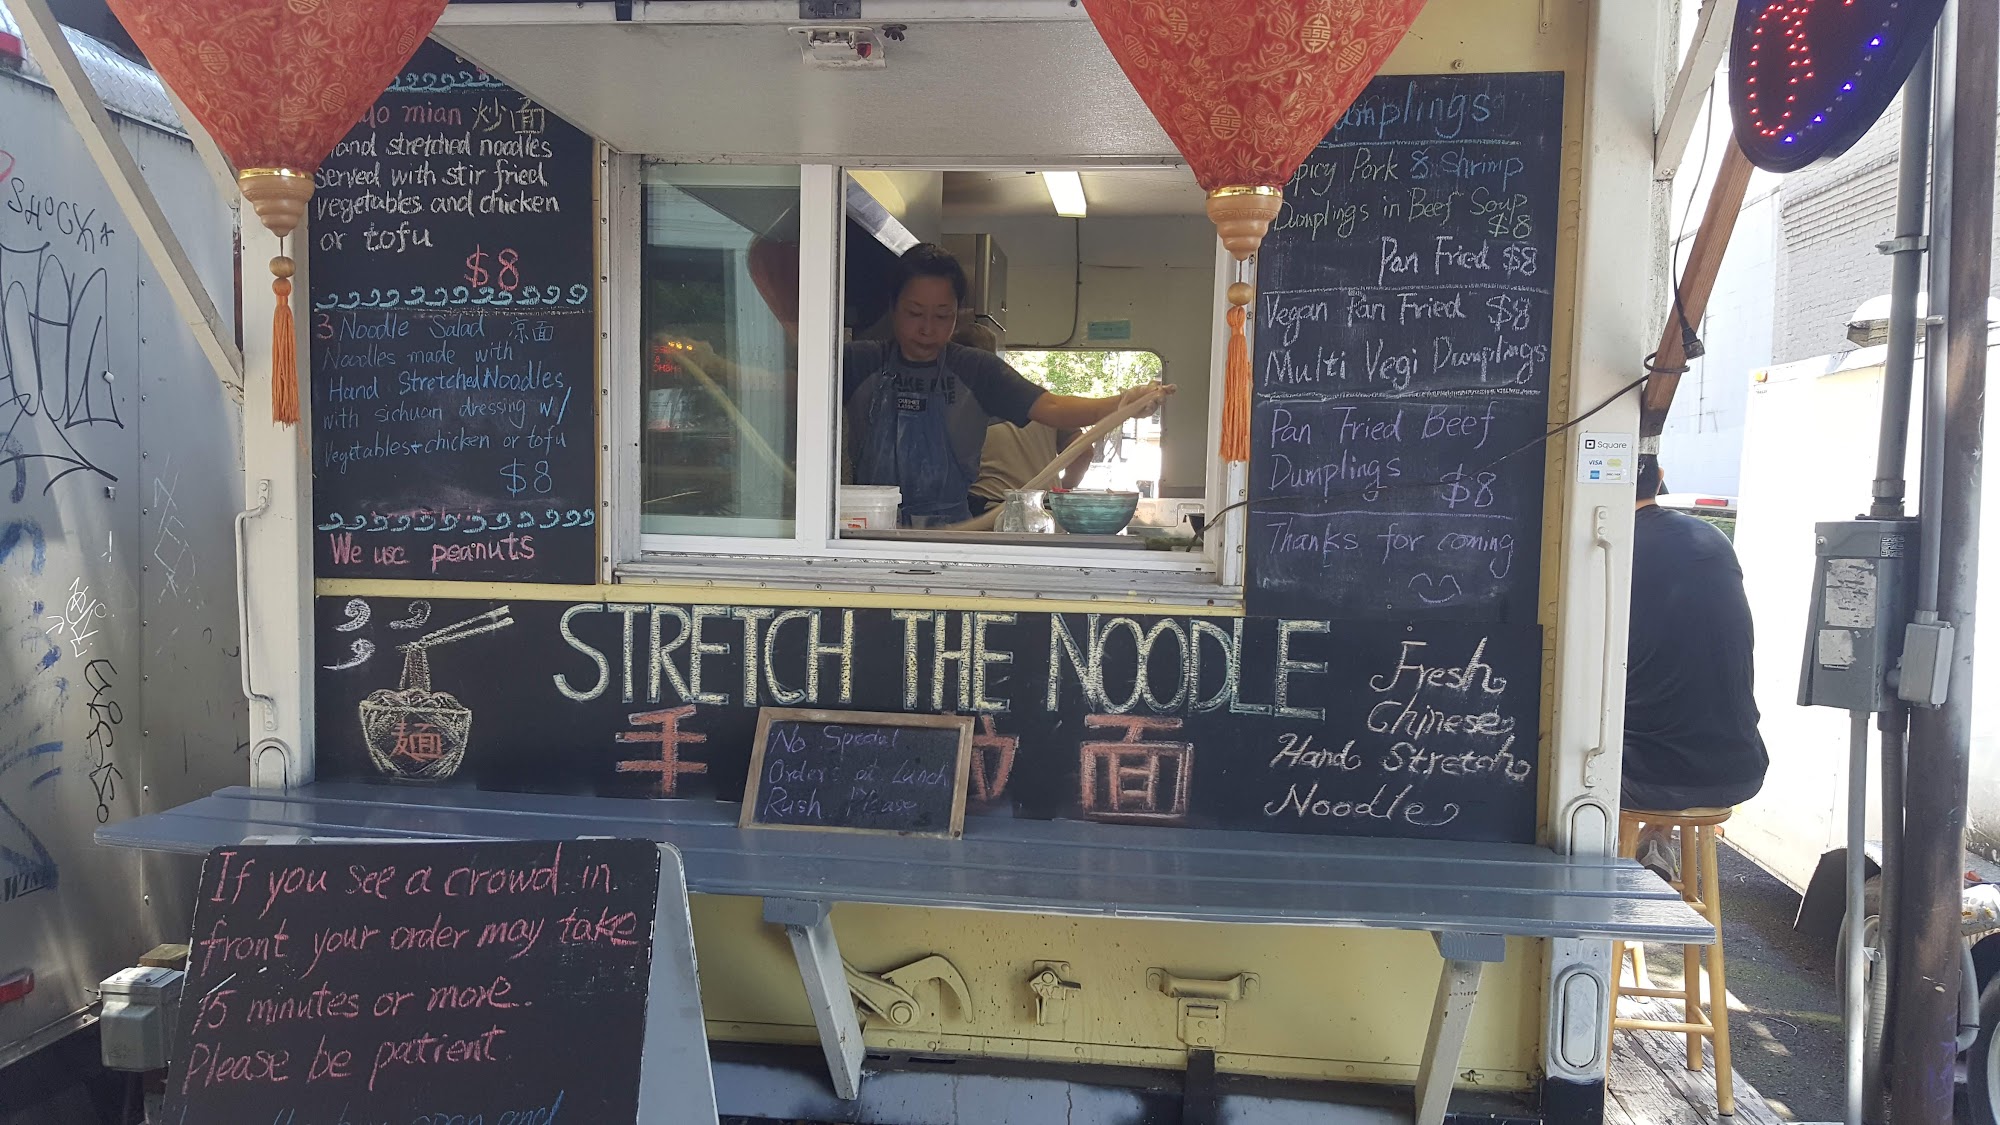 mian 炒面
Hand stretched noodles
served with stir fried
vegetables and chicken
or tofu
$8
3 Noodle Salad 凉面
Noodles made with
Hand Stretched Noodles
with sichuan dressing w/
Vegetables + chicken or tofu
$8
We use peanuts
Dumplings
Spicy Pork & Shrimp
Dumplings in Beef Soup
$8
Pan Fried $8
Vegan Pan Fried $8
Multi Vegi Dumplings
Pan Fried Beef
Dumplings $8
Thanks for coming
Square
VISA
STRETCH THE NOODLE
手 拉 面
麺
Fresh
Chinese
Hand Stretch
Noodle
No Special
Orders at Lunch
Rush Please
If you see a crowd in
front your order may take
15 minutes or more.
Please be patient
open and